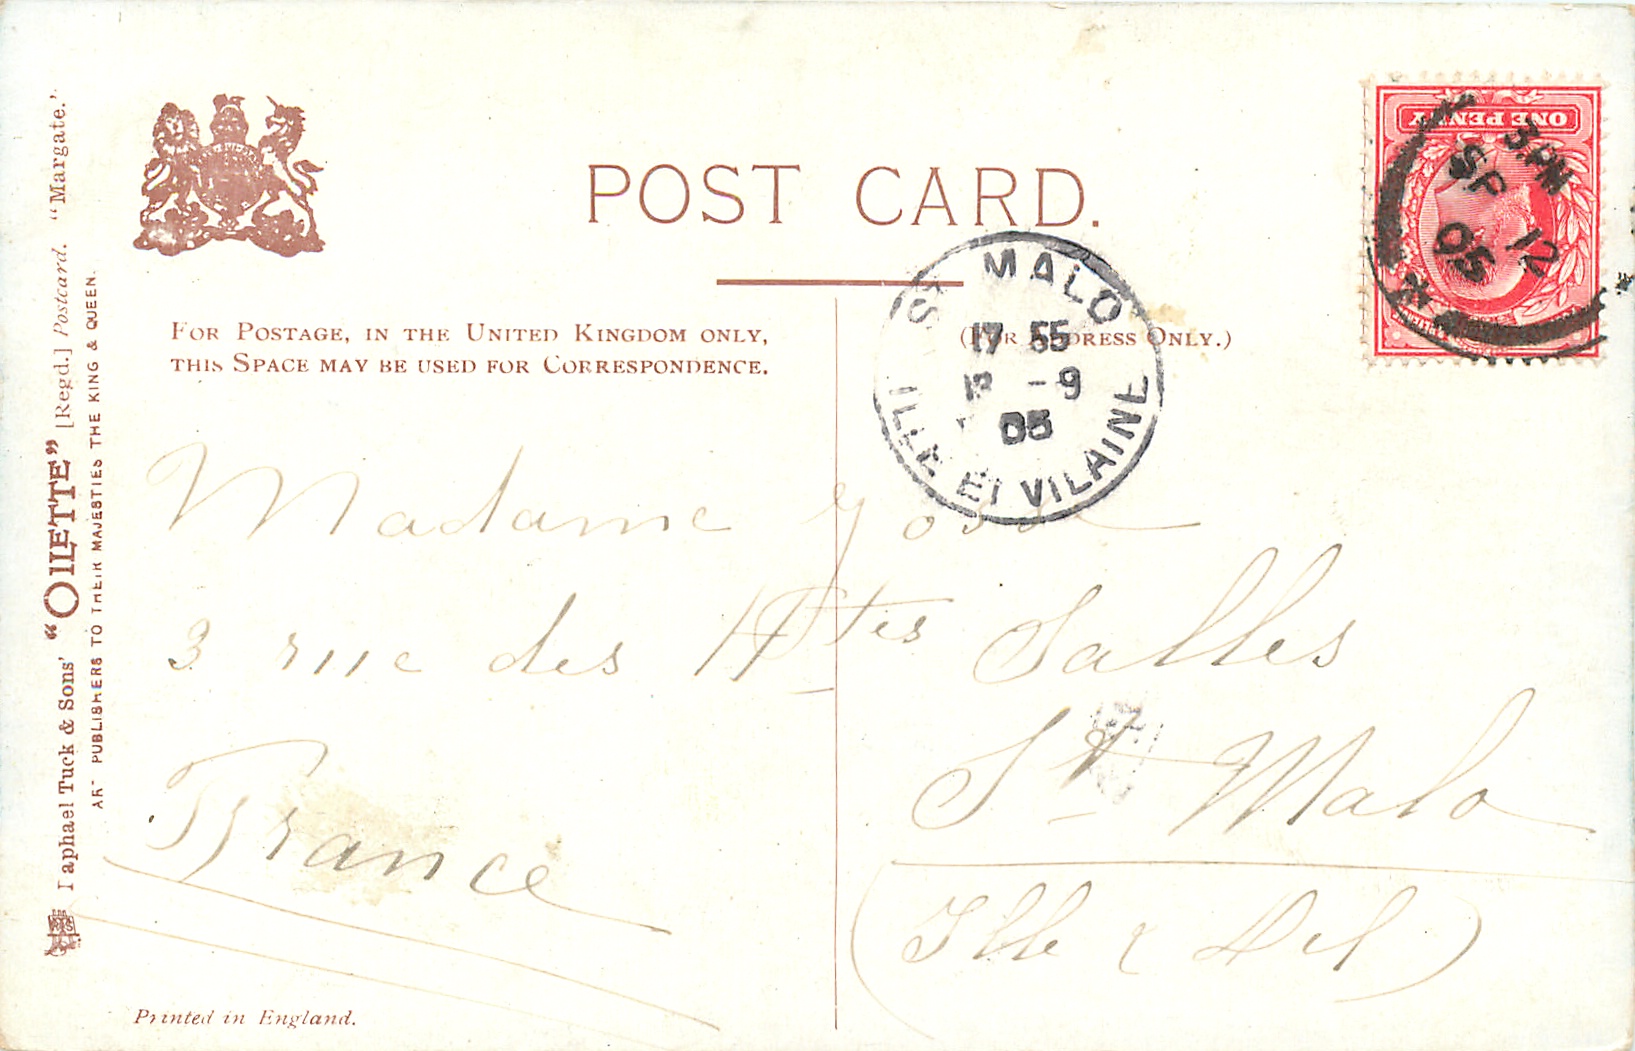 POST CARD.
FOR POSTAGE, IN THE UNITED KINGDOM ONLY,
THIS SPACE MAY BE USED FOR CORRESPONDENCE.
(FOR ADDRESS ONLY.)
ONE PENNY
3.PM
SP 12
05
ST MALO
17 55
-9
05
ILLE ET VILAINE
Madame Gosse
3 rue des Htes Salles
St Malo
France
(Ille &
Raphael Tuck & Sons' "OILETTE" [Regd.] Postcard. "Margate."
ART PUBLISHERS TO THEIR MAJESTIES THE KING & QUEEN.
Printed in England.